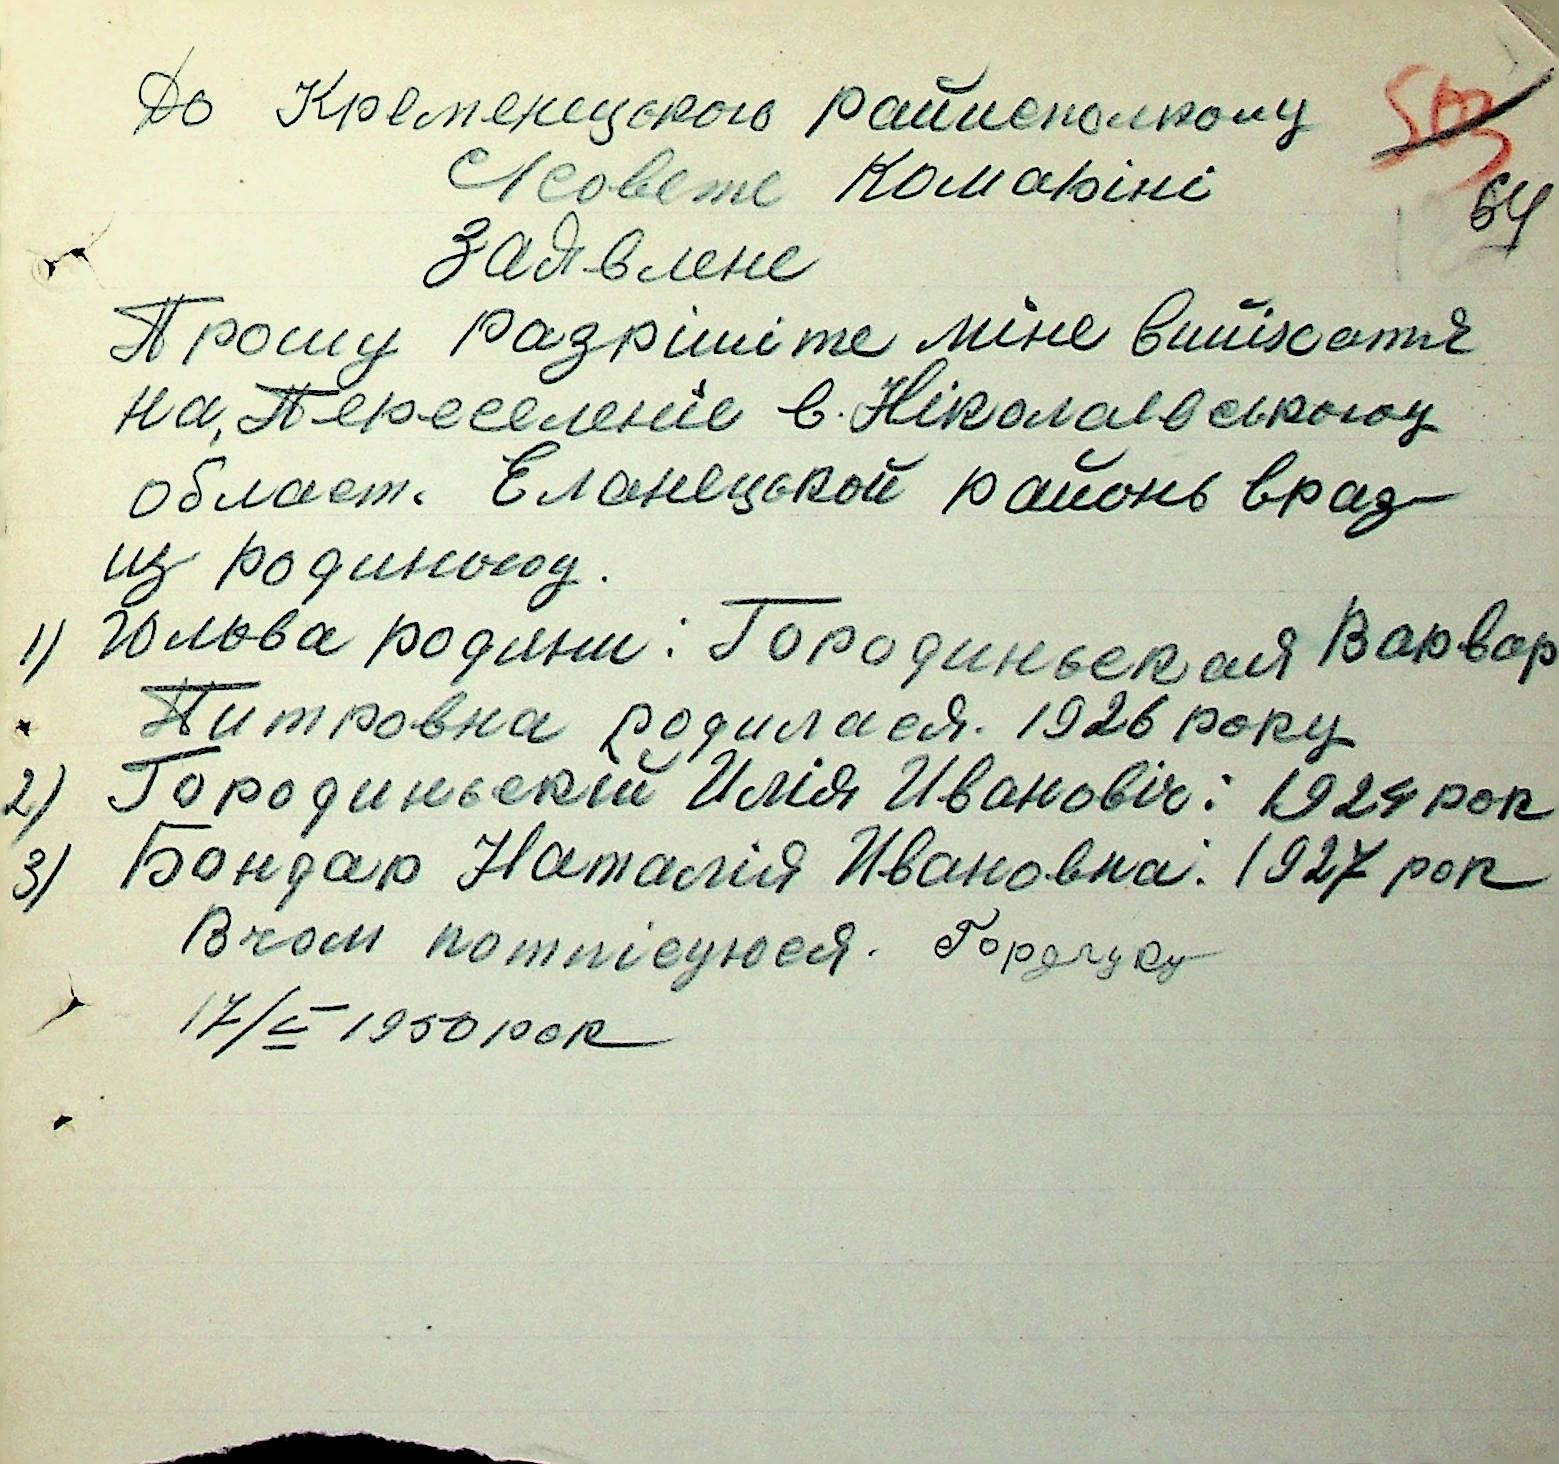 До Кременецького райисполкому
Совете Комаріні
Заявлене
Прошу разрішіте міне вийіхатя
на, Переселеніе в. Ніколаевськоюу
област. Еланецькой районь враз
из родиною.
1) Гольва родини: Городиньская Варвар
Питровна родилася. 1926 року
2) Городиньскій Илія Ивановіч: 1924 рок
3) Бондар Наталія Ивановна: 1927 рок
Вчом потпісуюся.
17/ 1950 рок
64